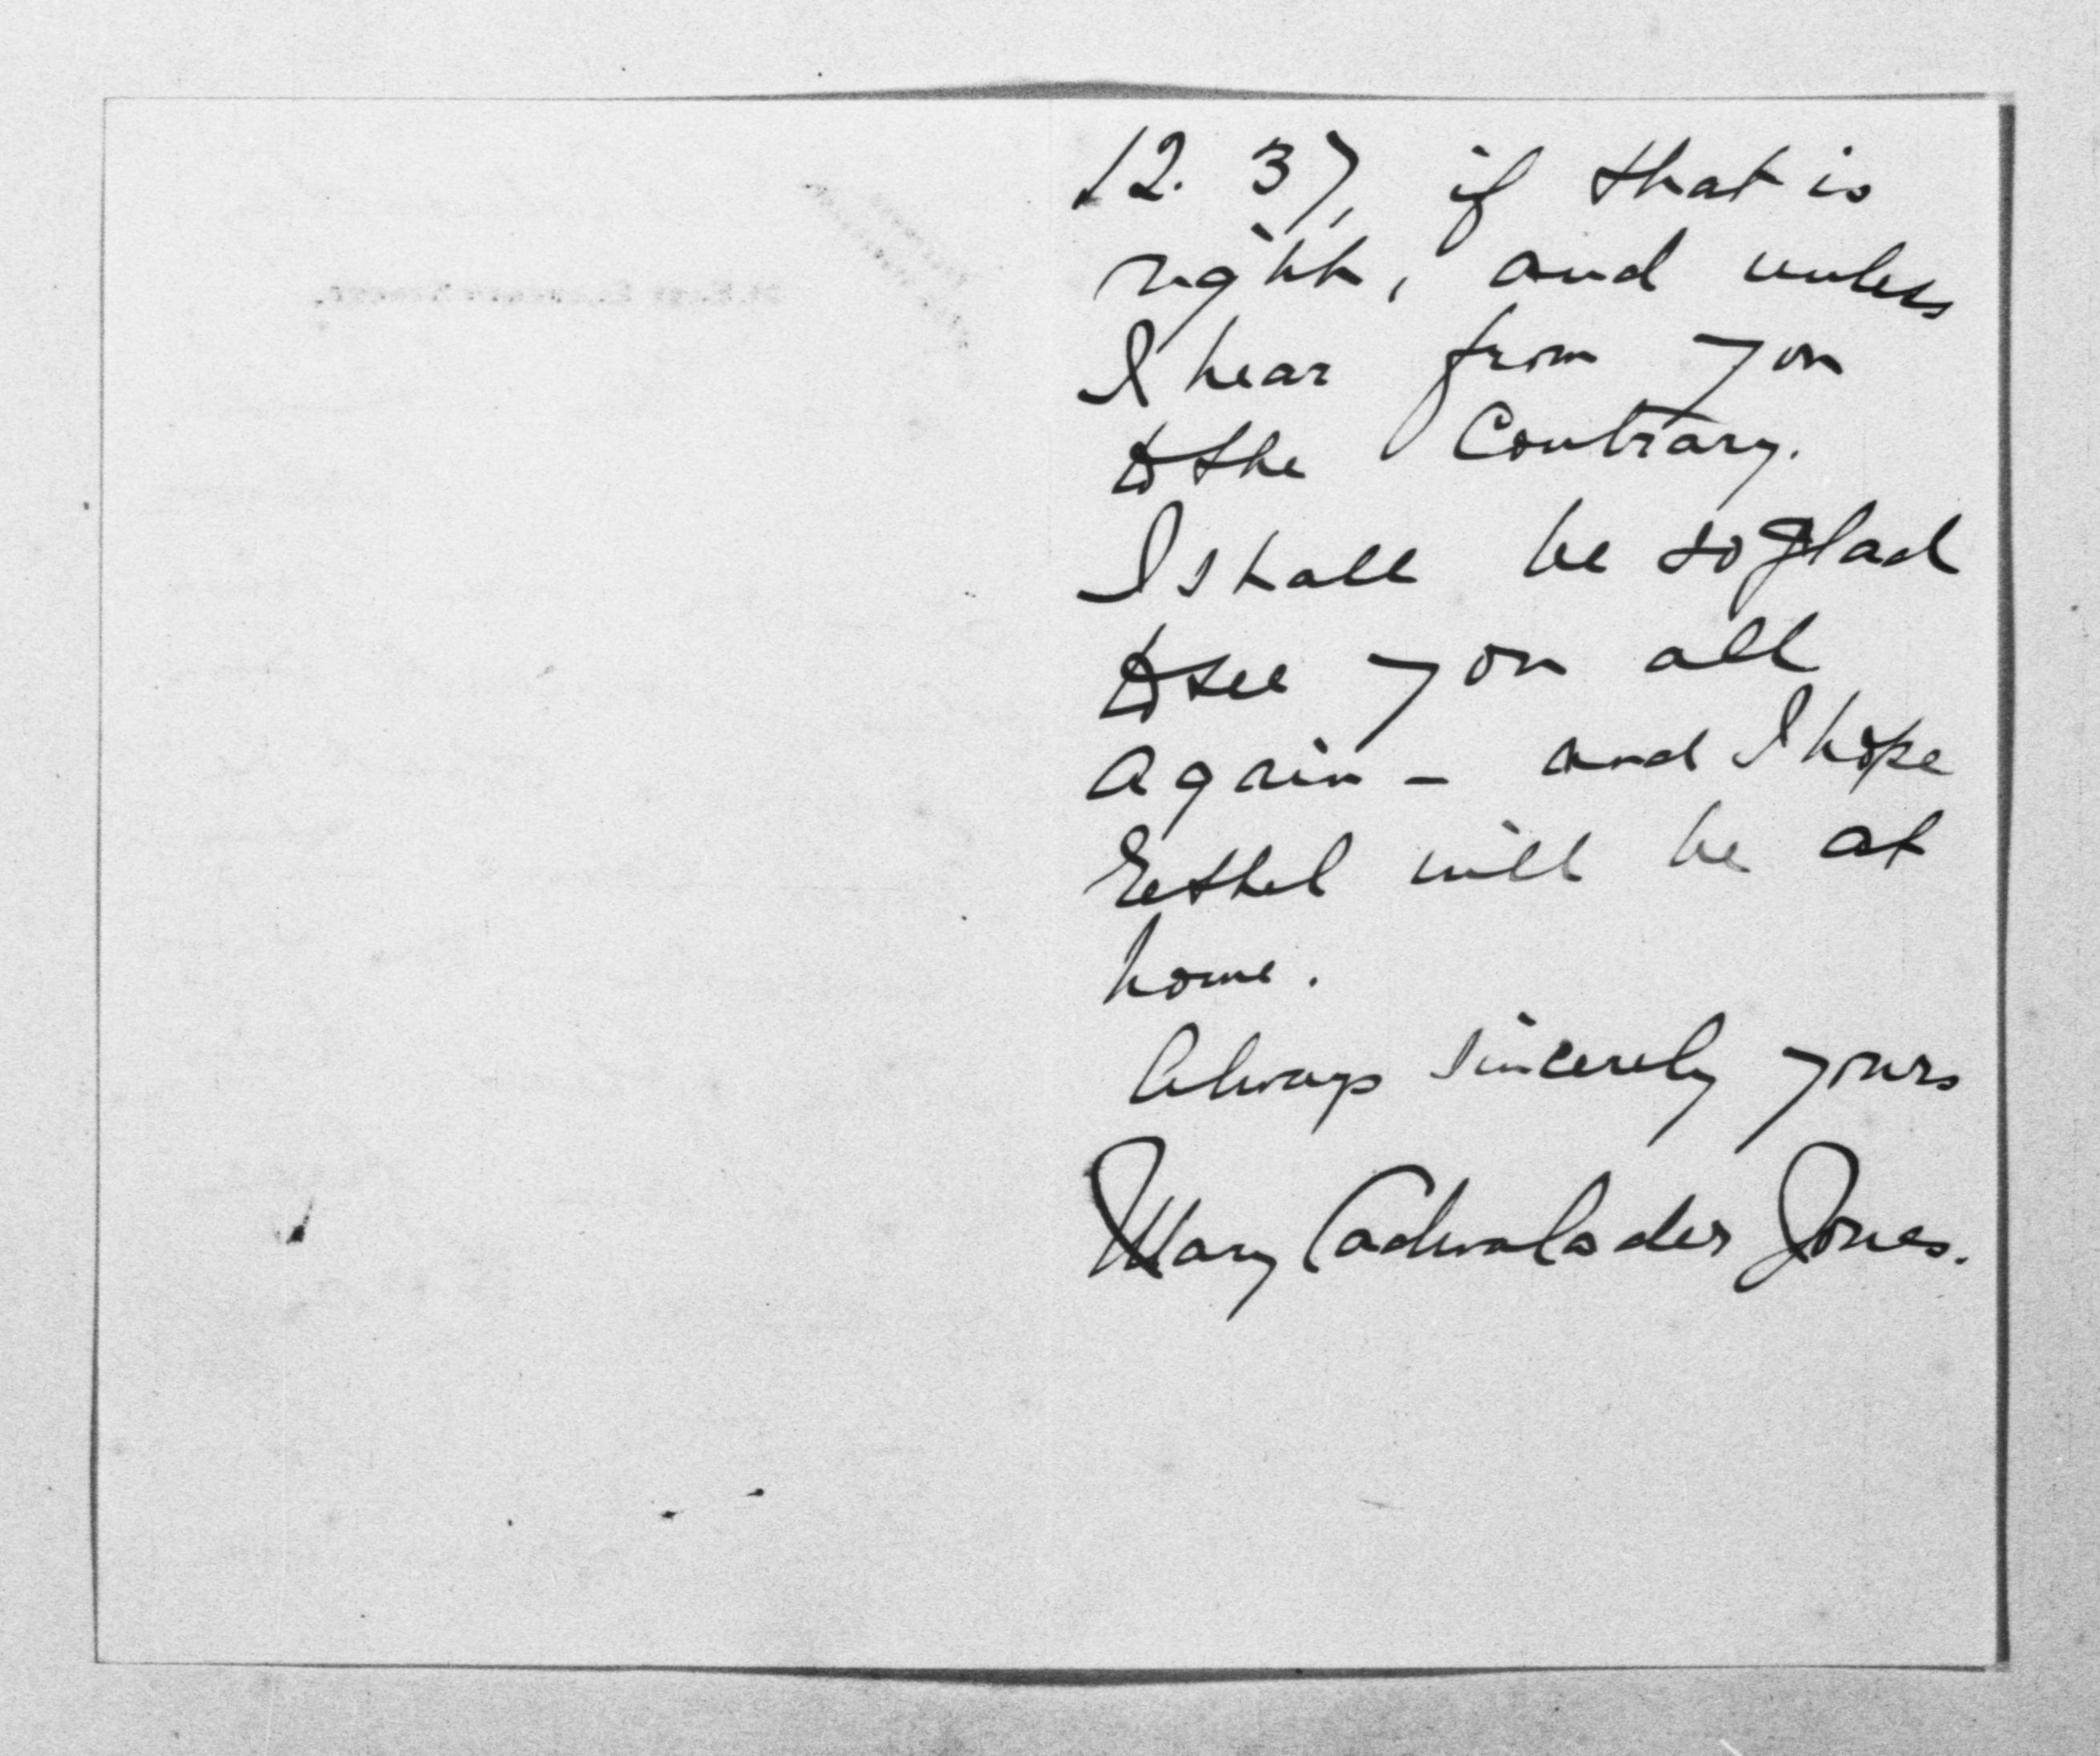 12.37, if that is
right, and unless
I hear from you
to the Contrary.
I shall be so glad
to see you all
again – and I hope
Ethel will be at
home.
Always sincerely yours
Mary Cadwalader Jones.